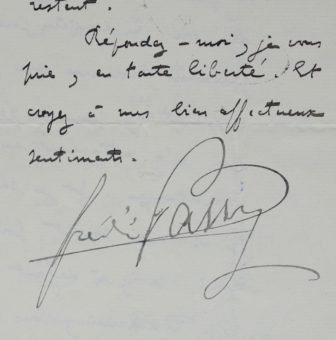 restent.
Répondez-moi, je vous
prie, en toute liberté. Et
croyez à mes bien affectueux
sentiments.
Frédéric Passy